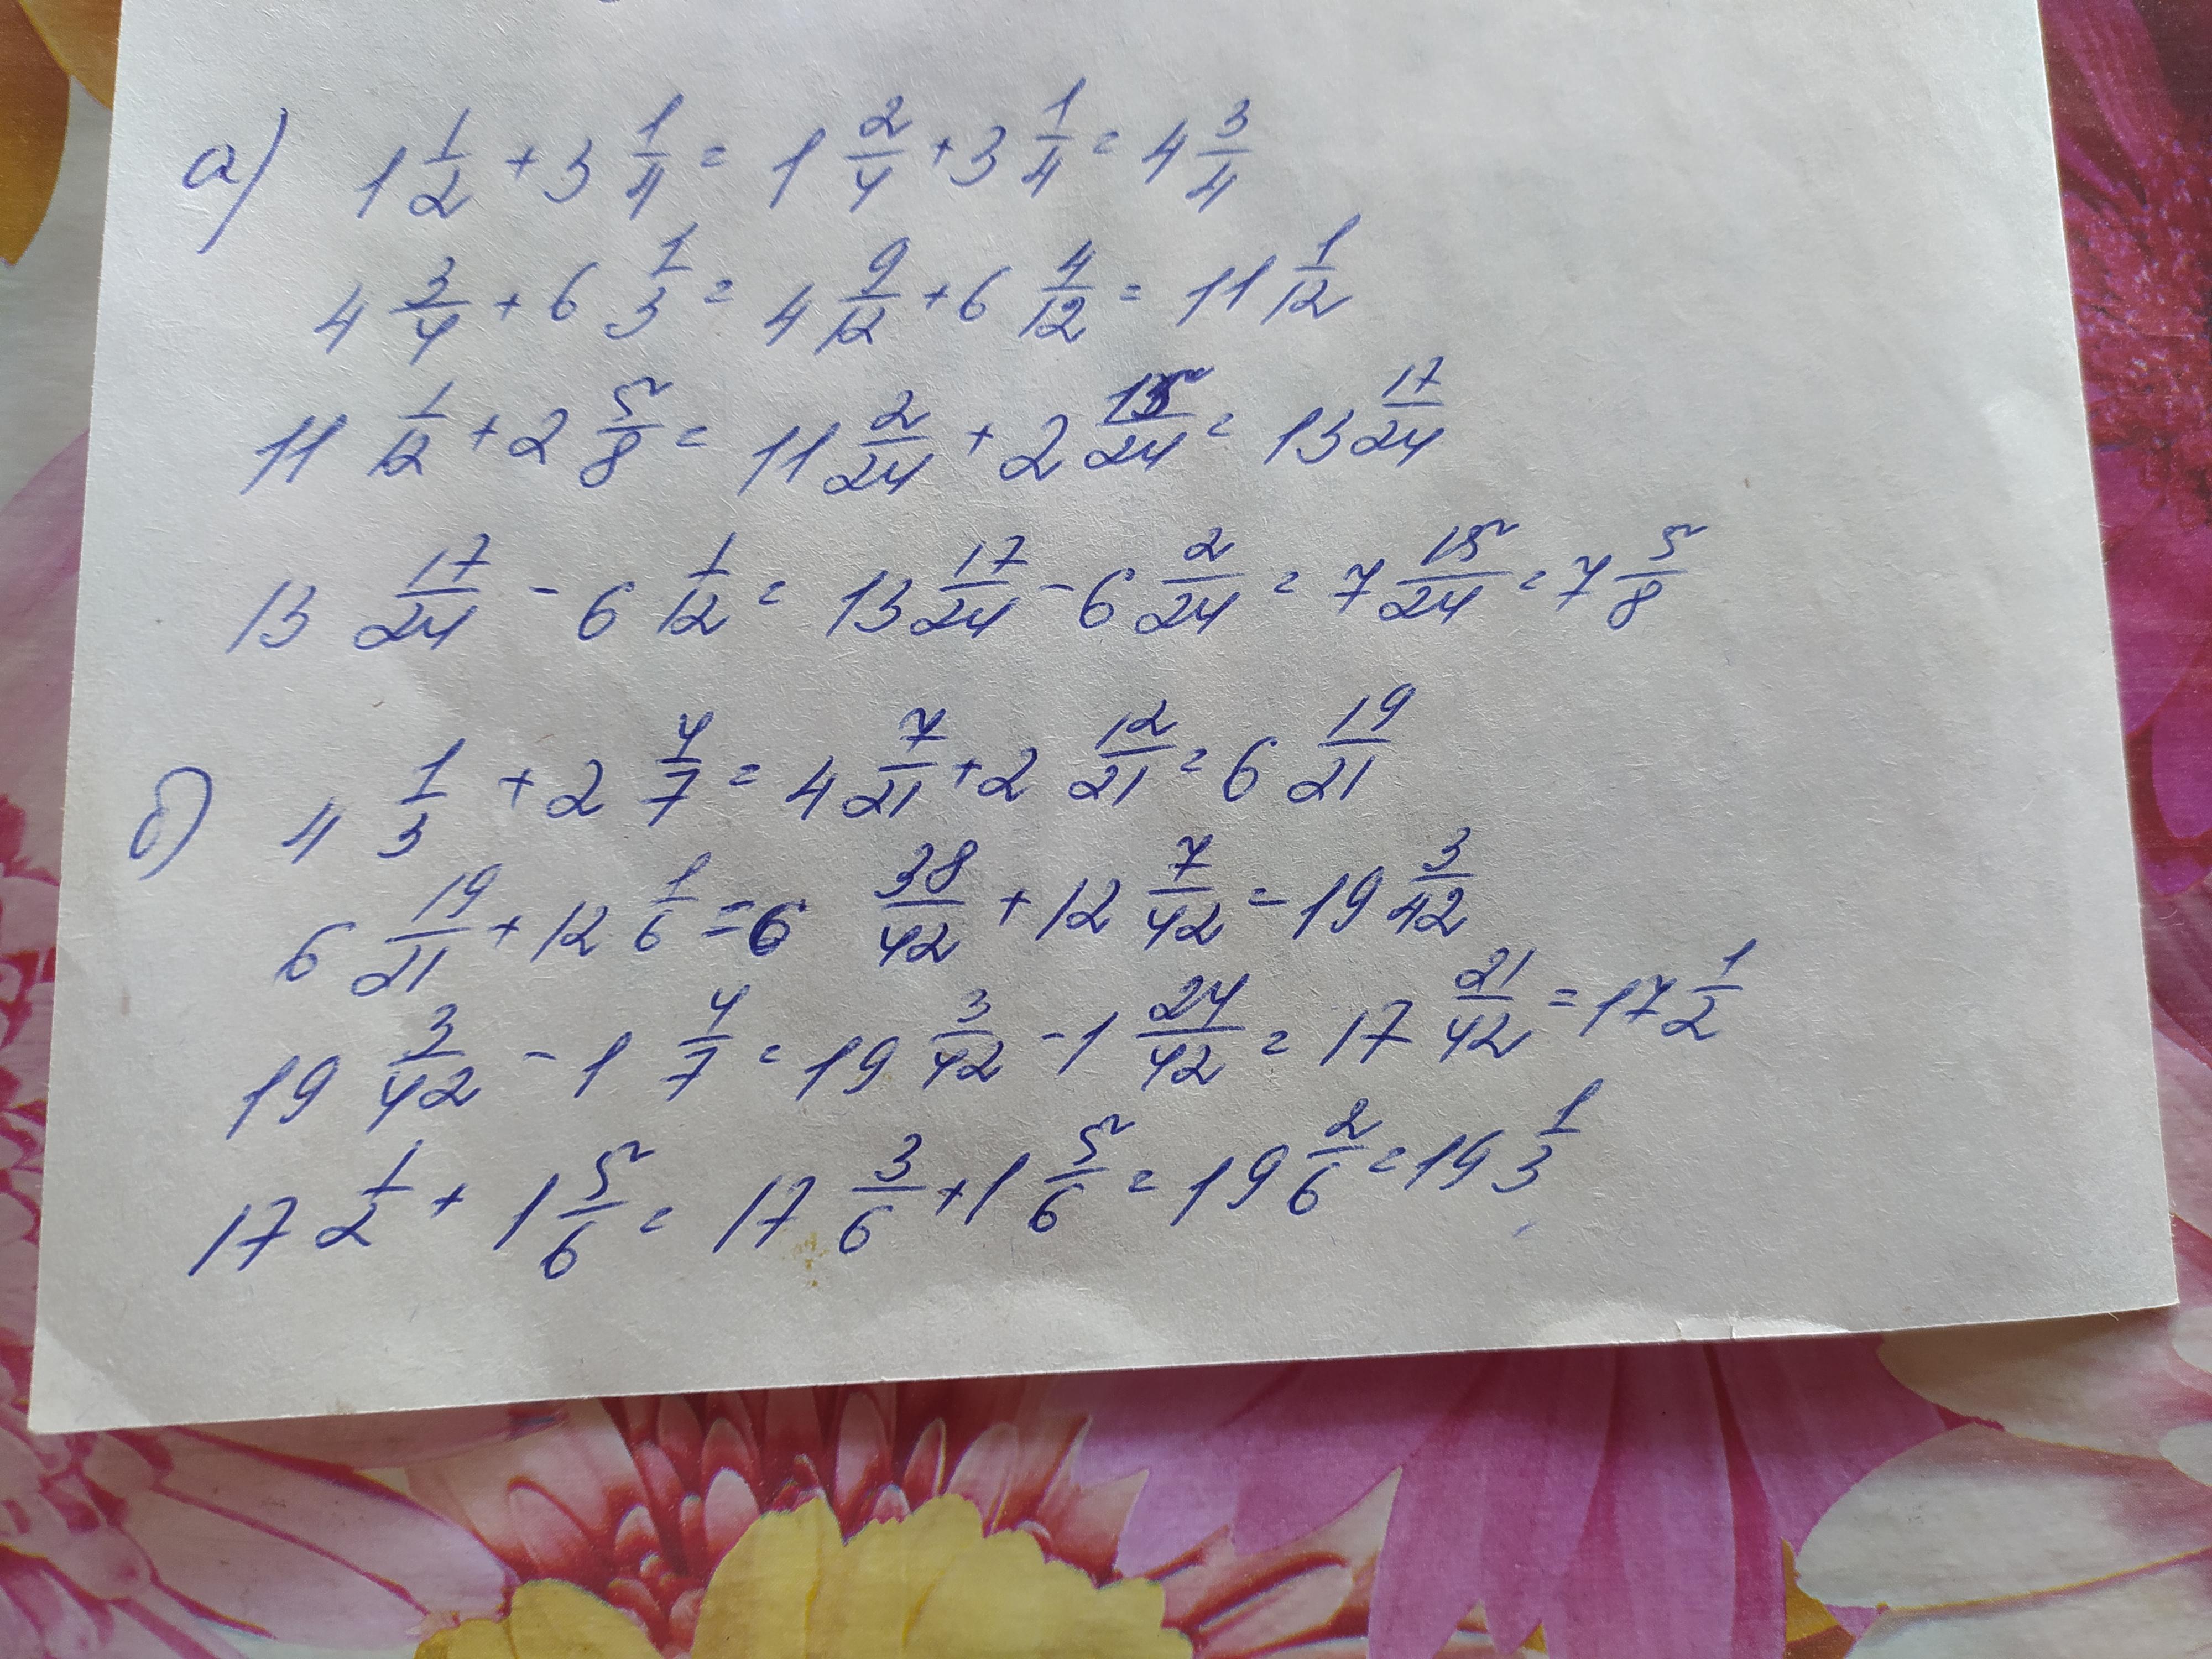 а) 1 1/2 + 3 1/4 = 1 2/4 + 3 1/4 = 4 3/4
4 3/4 + 6 1/3 = 4 9/12 + 6 4/12 = 11 1/12
11 1/12 + 2 5/8 = 11 2/24 + 2 15/24 = 13 17/24
13 17/24 - 6 1/12 = 13 17/24 - 6 2/24 = 7 15/24 = 7 5/8
б) 4 1/3 + 2 4/7 = 4 7/21 + 2 12/21 = 6 19/21
6 19/21 + 12 1/6 = 6 38/42 + 12 7/42 = 19 3/42
19 3/42 - 1 4/7 = 19 3/42 - 1 24/42 = 17 21/42 = 17 1/2
17 1/2 + 1 5/6 = 17 3/6 + 1 5/6 = 19 2/6 = 19 1/3